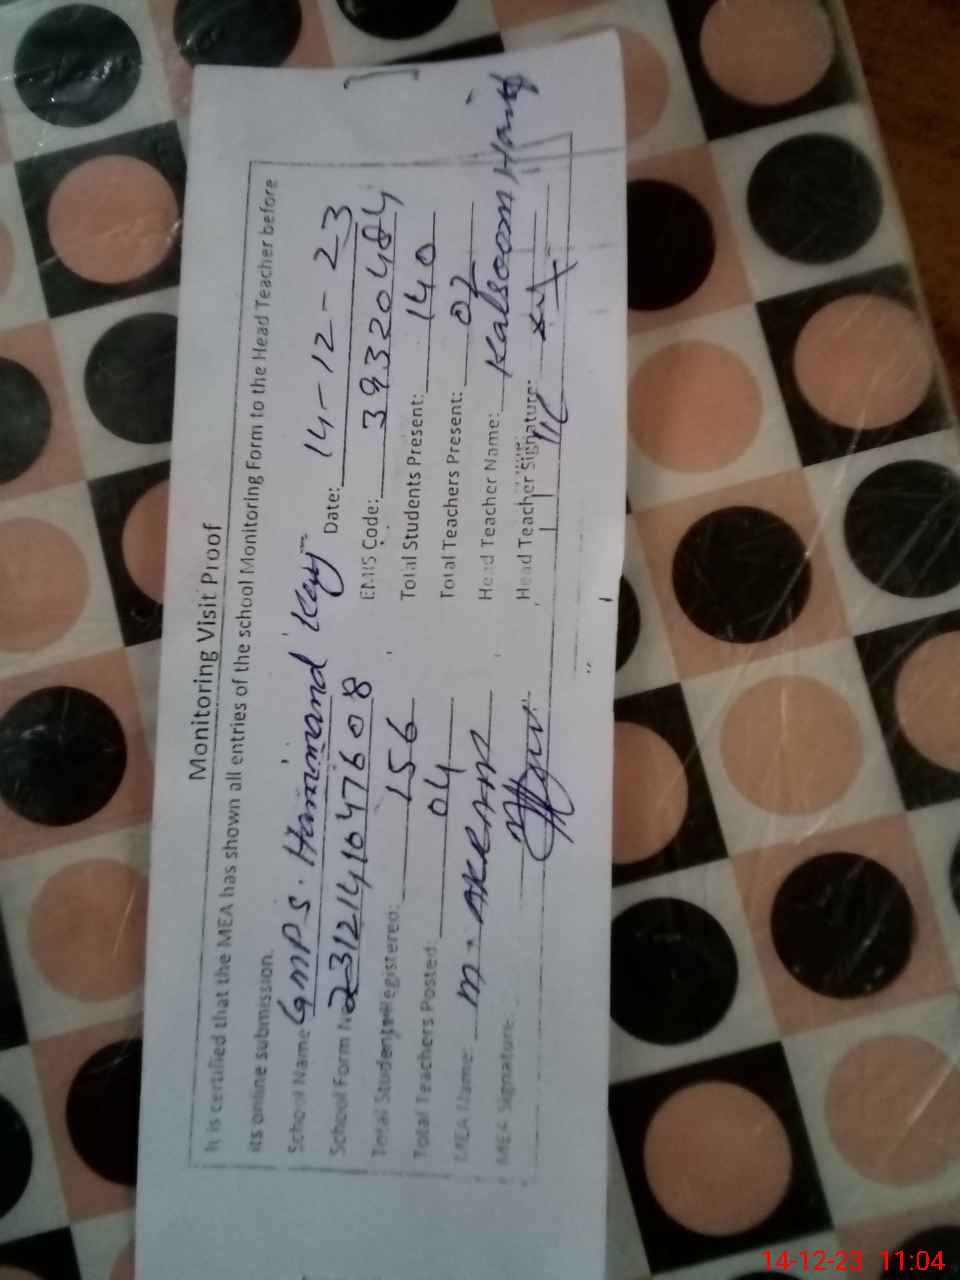 Monitoring Visit Proof
It is certified that the MEA has shown all entries of the school Monitoring Form to the Head Teacher before
its online submission.
School Name GMPS. Date: 14-12-23
School Form No 2312141047608 EMIS Code: 39320484
Total Students Registered: 156 Total Students Present: 140
Total Teachers Posted: 04 Total Teachers Present: 02
MEA Name: M. AKRAM Head Teacher Name: Kalsoom Hanif
MEA Signature: Head Teacher Signature:
14-12-23 11:04